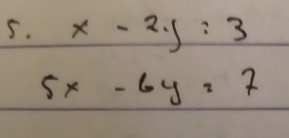 5. x - 2y = 3
5x - 6y = 7